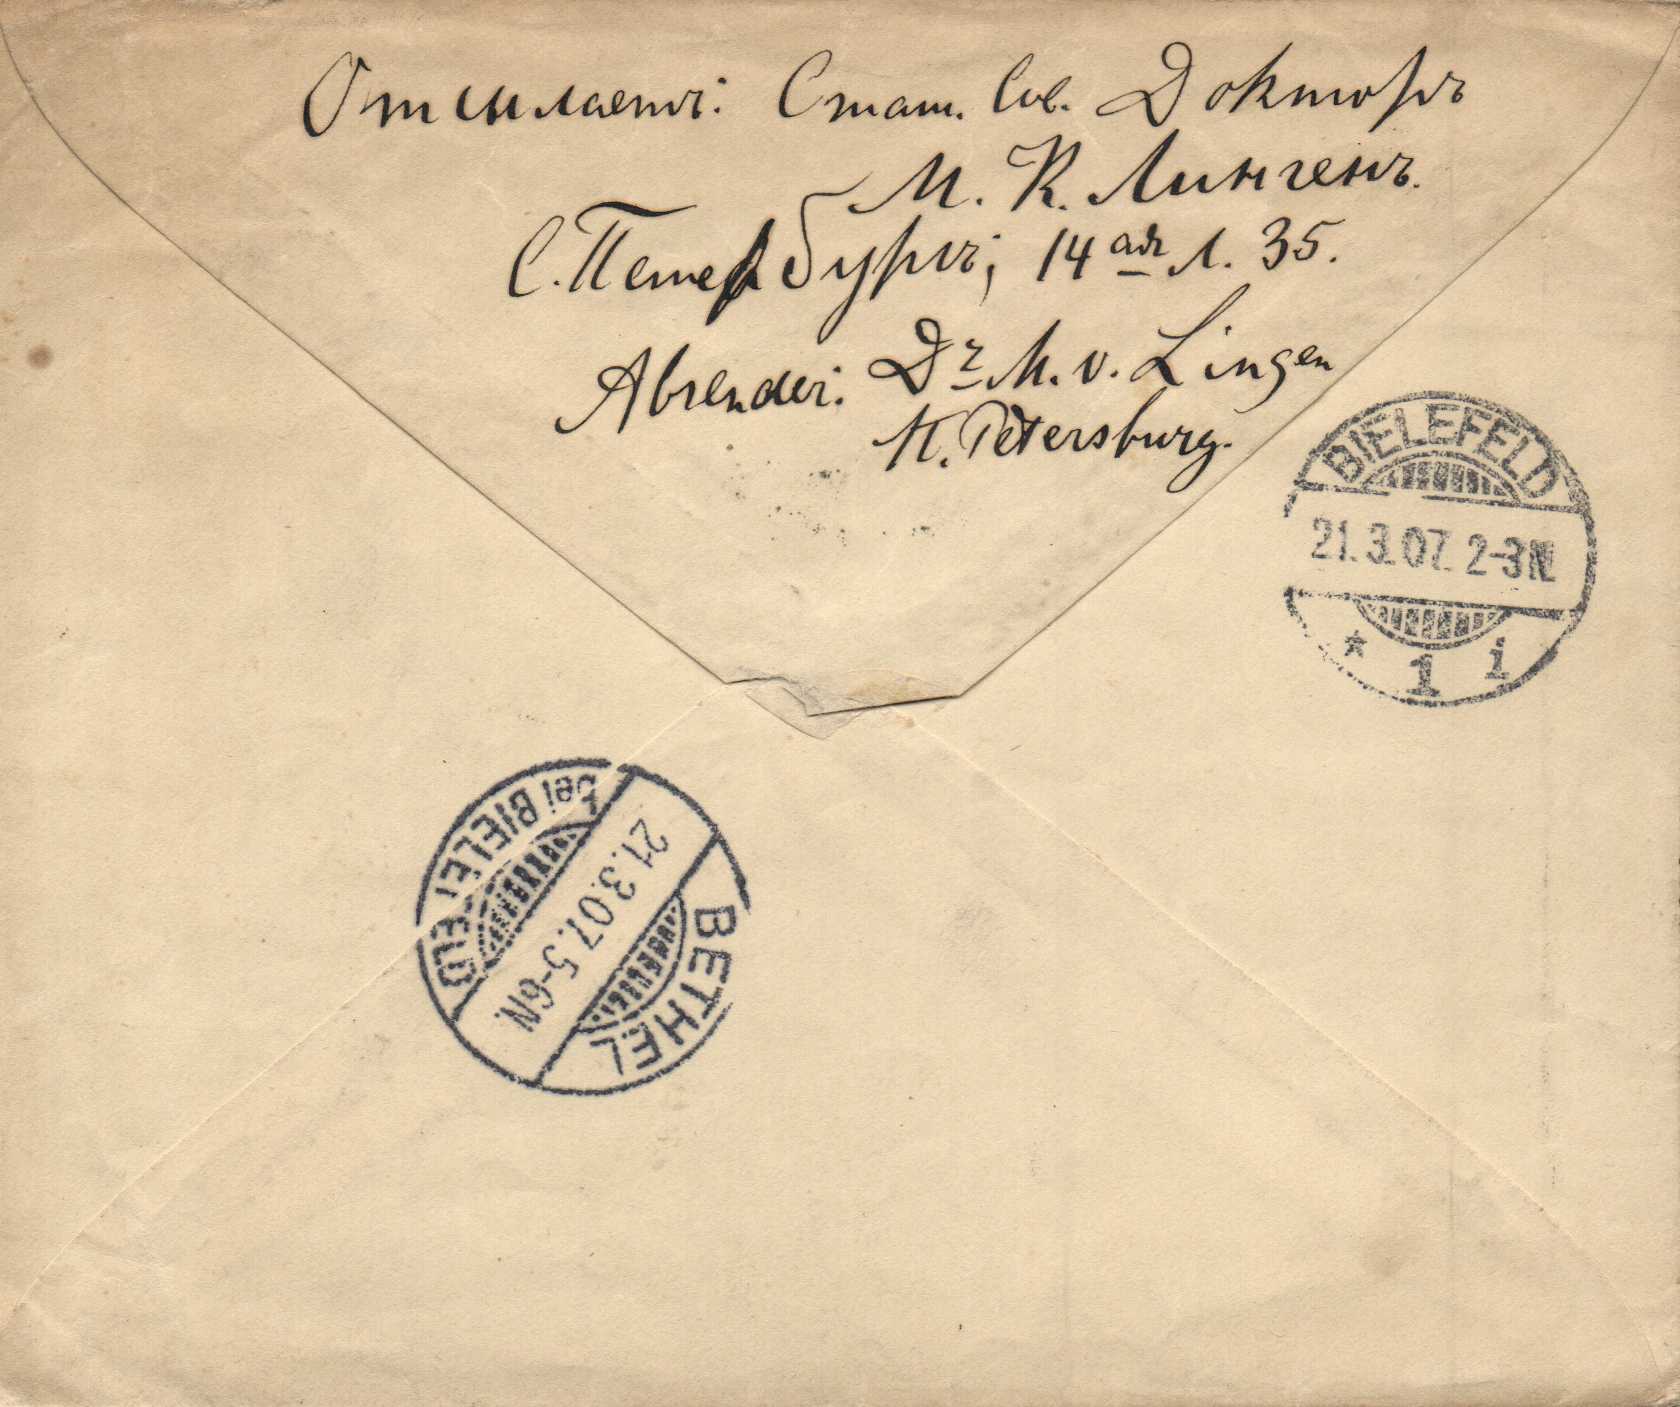 Отсылаетъ: Стат. Сов. Докторъ
М. К. Лингенъ.
С. Петербургъ; 14ая л. 35.
Absender: Dr M. v. Lingen
St. Petersburg.
BIELEFELD
21.3.07. 2-3N.
* 1 i
BETHEL
21.3.07. 5-6N.
bei BIELEFELD